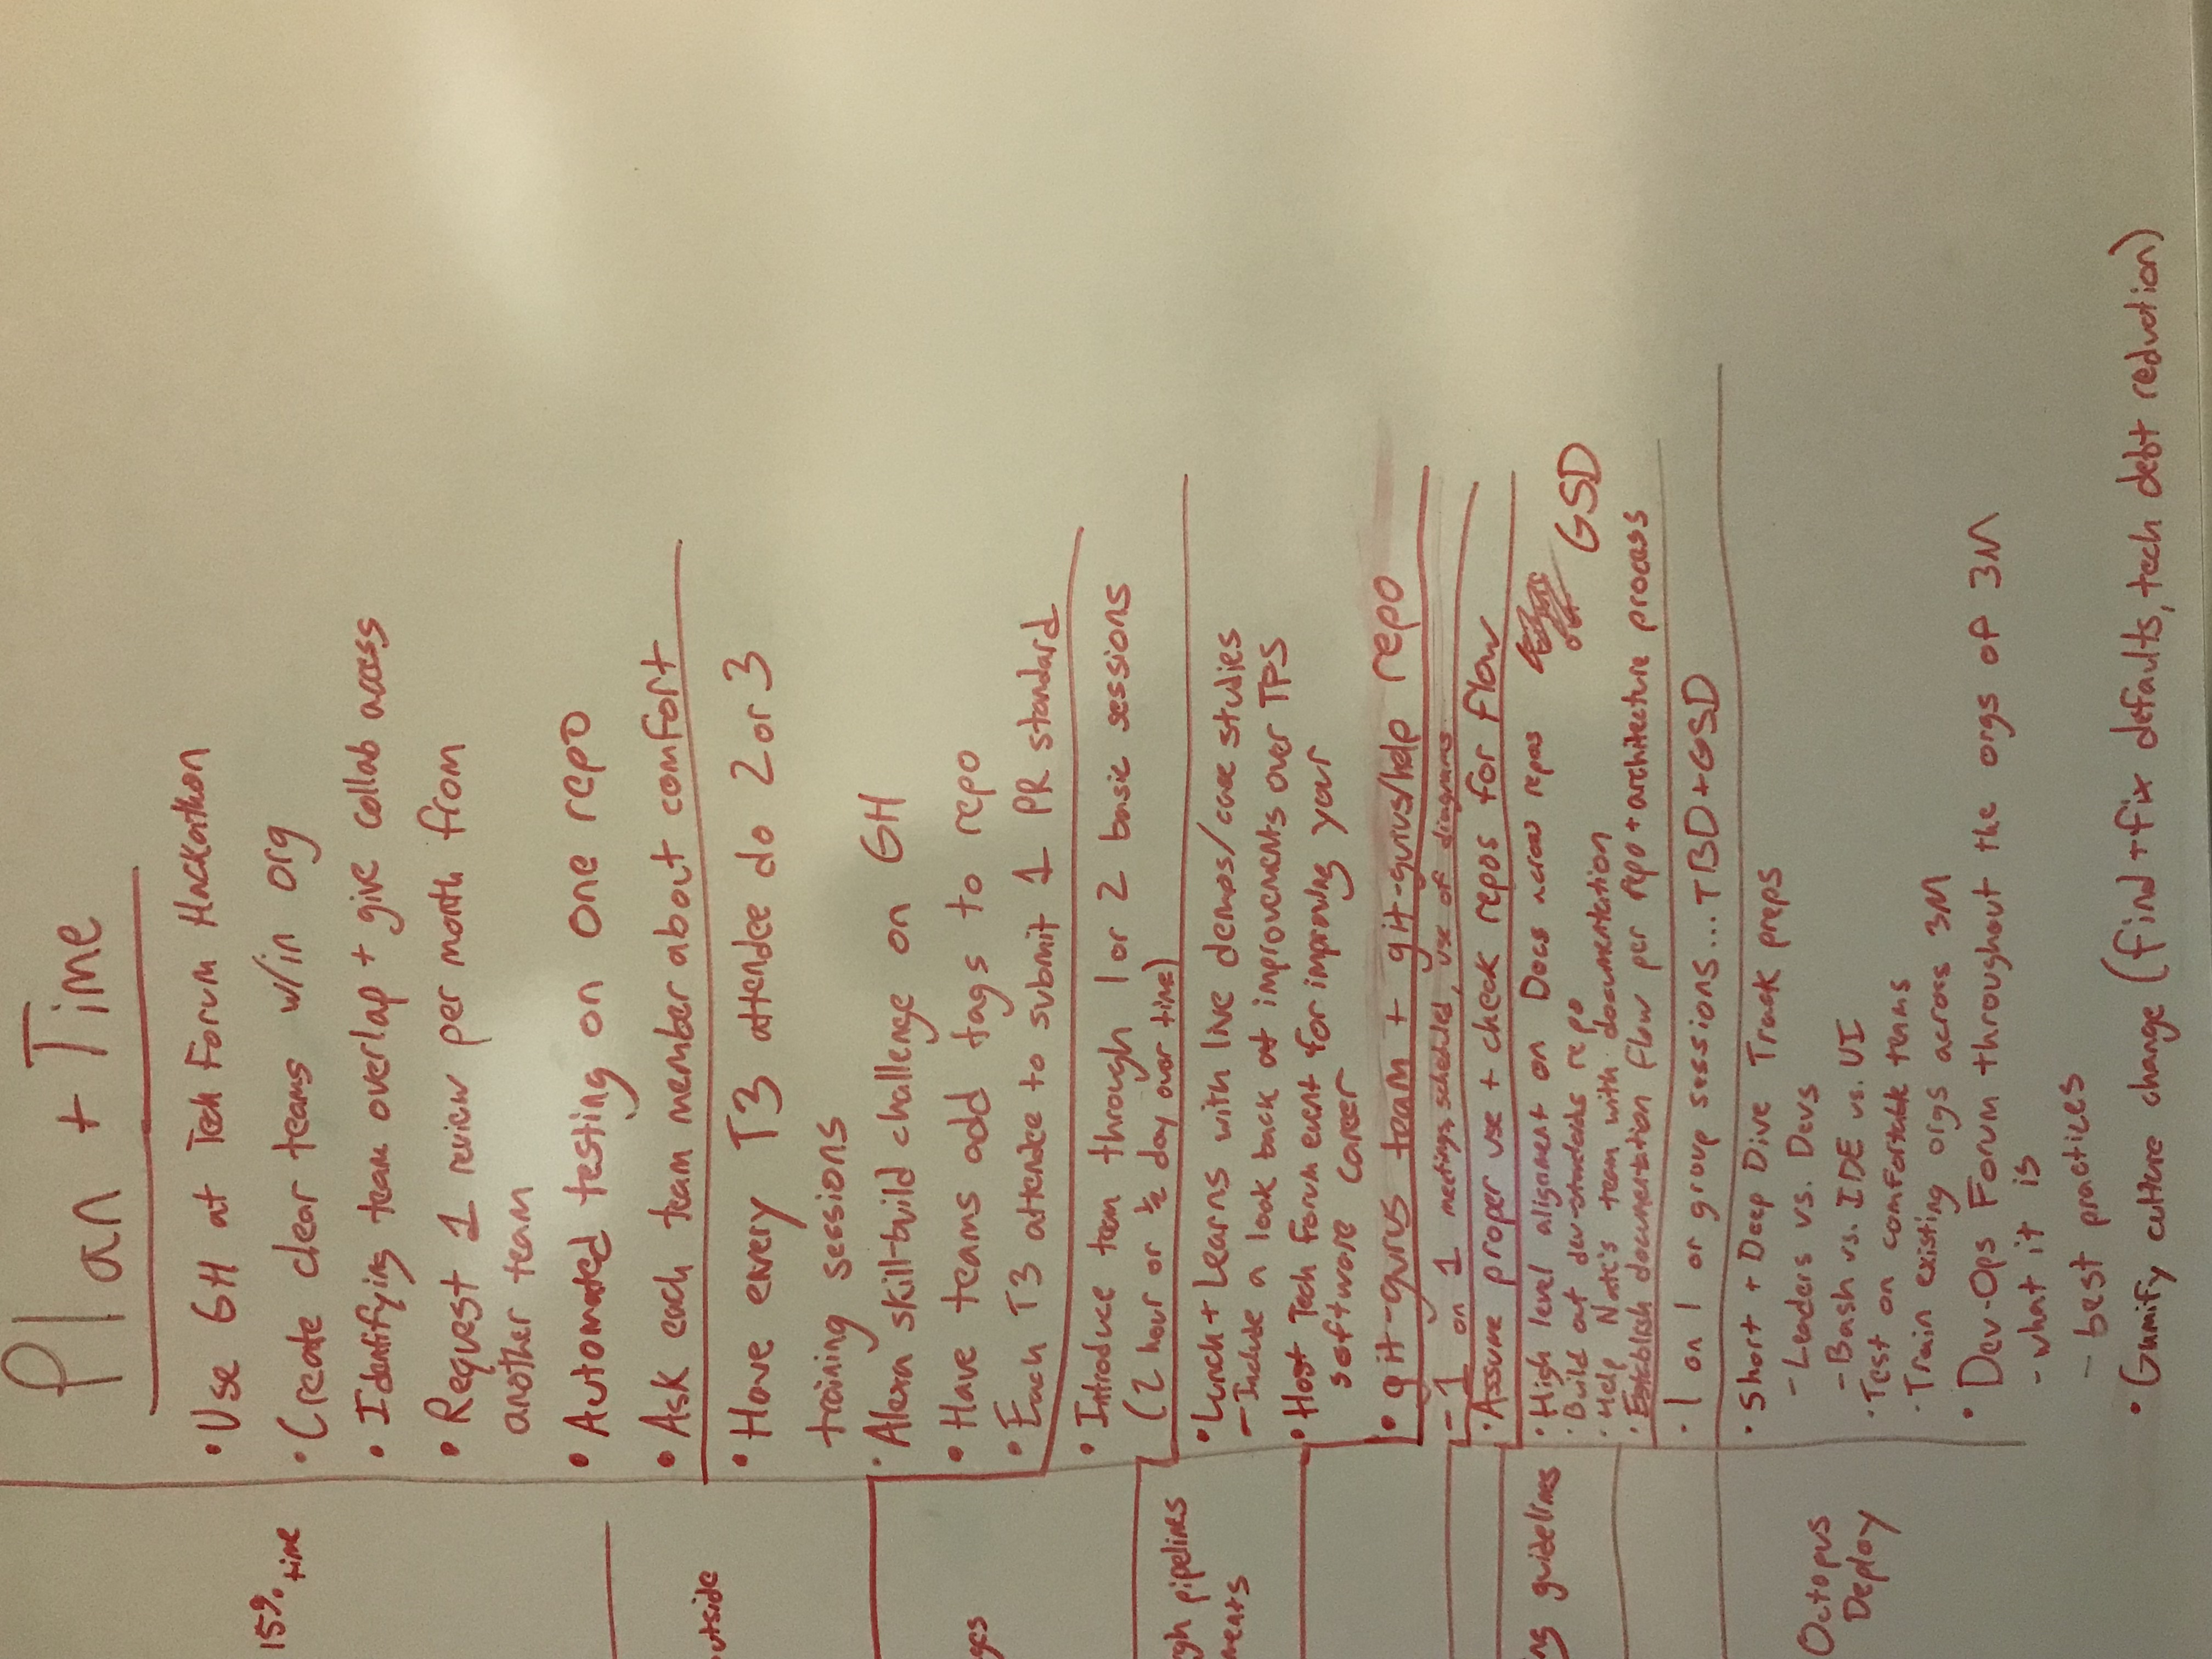 Plan + Time
• Use GH at Tech Forum Hackathon
15% time
• Create clear teams w/in org
• Identifying team overlap + give collab access
• Request 1 review per month from
another team
• Automated testing on one repo
• Ask each team member about comfort
utside
• Have every T3 attendee do 2 or 3
training sessions
• Alexa skill-build challenge on GH
• Have teams add tags to repo
ges
• Each T3 attendee to submit 1 PR standard
• Introduce team through 1 or 2 basic sessions
(2 hour or 1/2 day over time)
gh pipelines
ments
• Lunch + Learns with live demos/case studies
- Include a look back at improvements over TPS
• Host Tech Forum event for improving your
software career
• git-gurus team + git-gurus/help repo
- 1 on 1 meetings scheduled, use of diagrams
• Assume proper use + check repos for flow
ng guidelines
• High level alignment on Docs across repos
• Build out dev-standards repo
GSD
• Help Nate's team with documentation
• Establish documentation flow per repo + architecture process
• 1 on 1 or group sessions... TBD + GSD
• Short + Deep Dive Track preps
- Leaders vs. Devs
Octopus
Deploy
- Bash vs. IDE vs. UI
• Test on comfortable teams
• Train existing orgs across 3M
• Dev-Ops Forum throughout the orgs of 3M
- what it is
- best practices
• Gamify culture change (find + fix defaults, tech debt reduction)